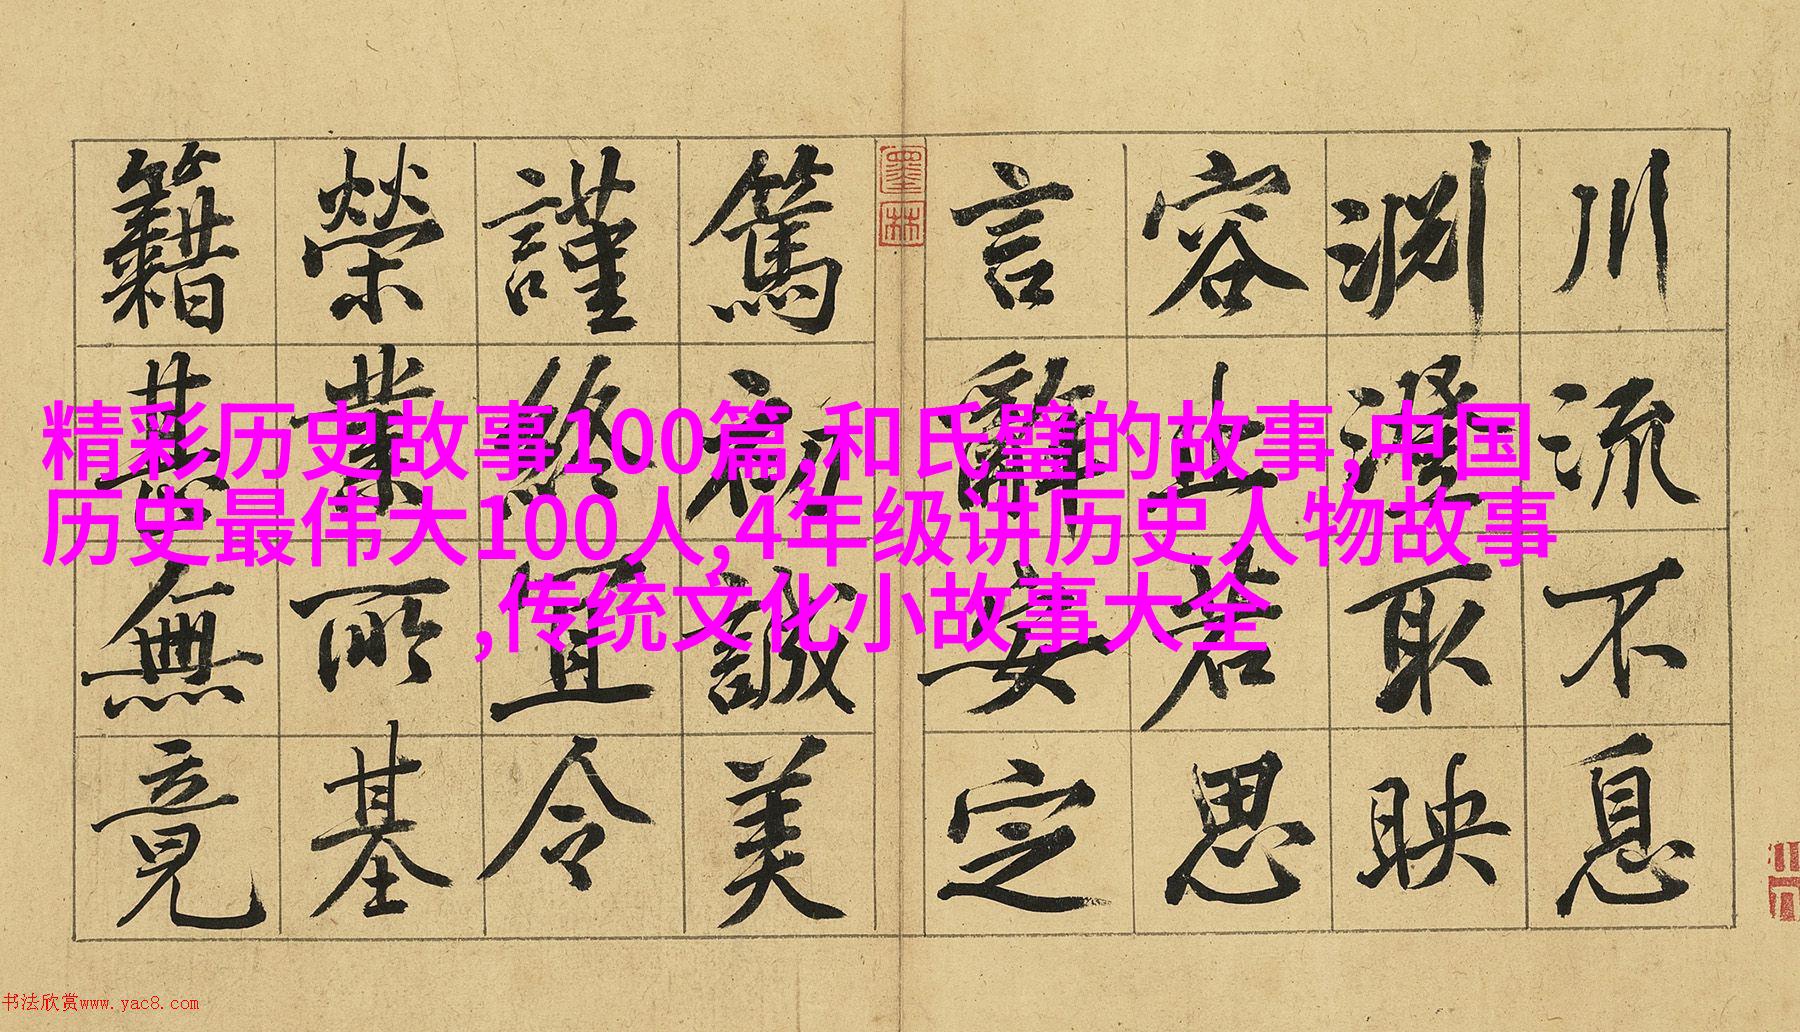 川流不息
淵澄取映
容止若思
言辭安定
墨林
篤初誠美
謹終宜令
榮業所基
籍甚無竟
精彩历史故事100篇,和氏璧的故事,中国
历史最伟大100人,4年级讲历史人物故事
,传统文化小故事大全
书法欣赏www.yac8.com